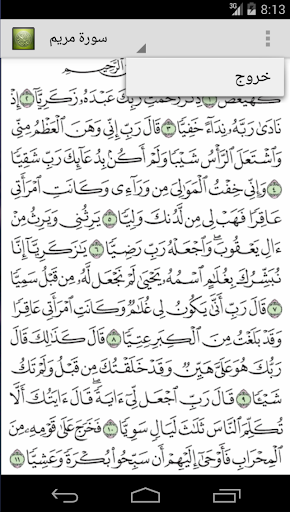 3G 8:13
سورة مريم
خروج
الرحيم
كهيعص ١ ذكر رحمت ربك عبده زكريا ٢ إذ
نادى ربه نداء خفيا ٣ قال رب إني وهن العظم مني
واشتعل الرأس شيبا ولم أكن بدعائك رب شقيا
٤ وإني خفت الموالي من وراءي وكانت امرأتي
عاقرا فهب لي من لدنك وليا ٥ يرثني ويرث من
ءال يعقوب واجعله رب رضيا ٦ يزكريا إنا
نبشرك بغلم اسمه يحيى لم نجعل له من قبل سميا
٧ قال رب أنى يكون لي غلم وكانت امرأتي عاقرا
وقد بلغت من الكبر عتيا ٨ قال كذلك قال
ربك هو علي هين وقد خلقتك من قبل ولم تك
شيئا ٩ قال رب اجعل لي ءاية قال ءايتك ألا
تكلم الناس ثلث ليال سويا ١٠ فخرج على قومه من
المحراب فأوحى إليهم أن سبحوا بكرة وعشيا ١١